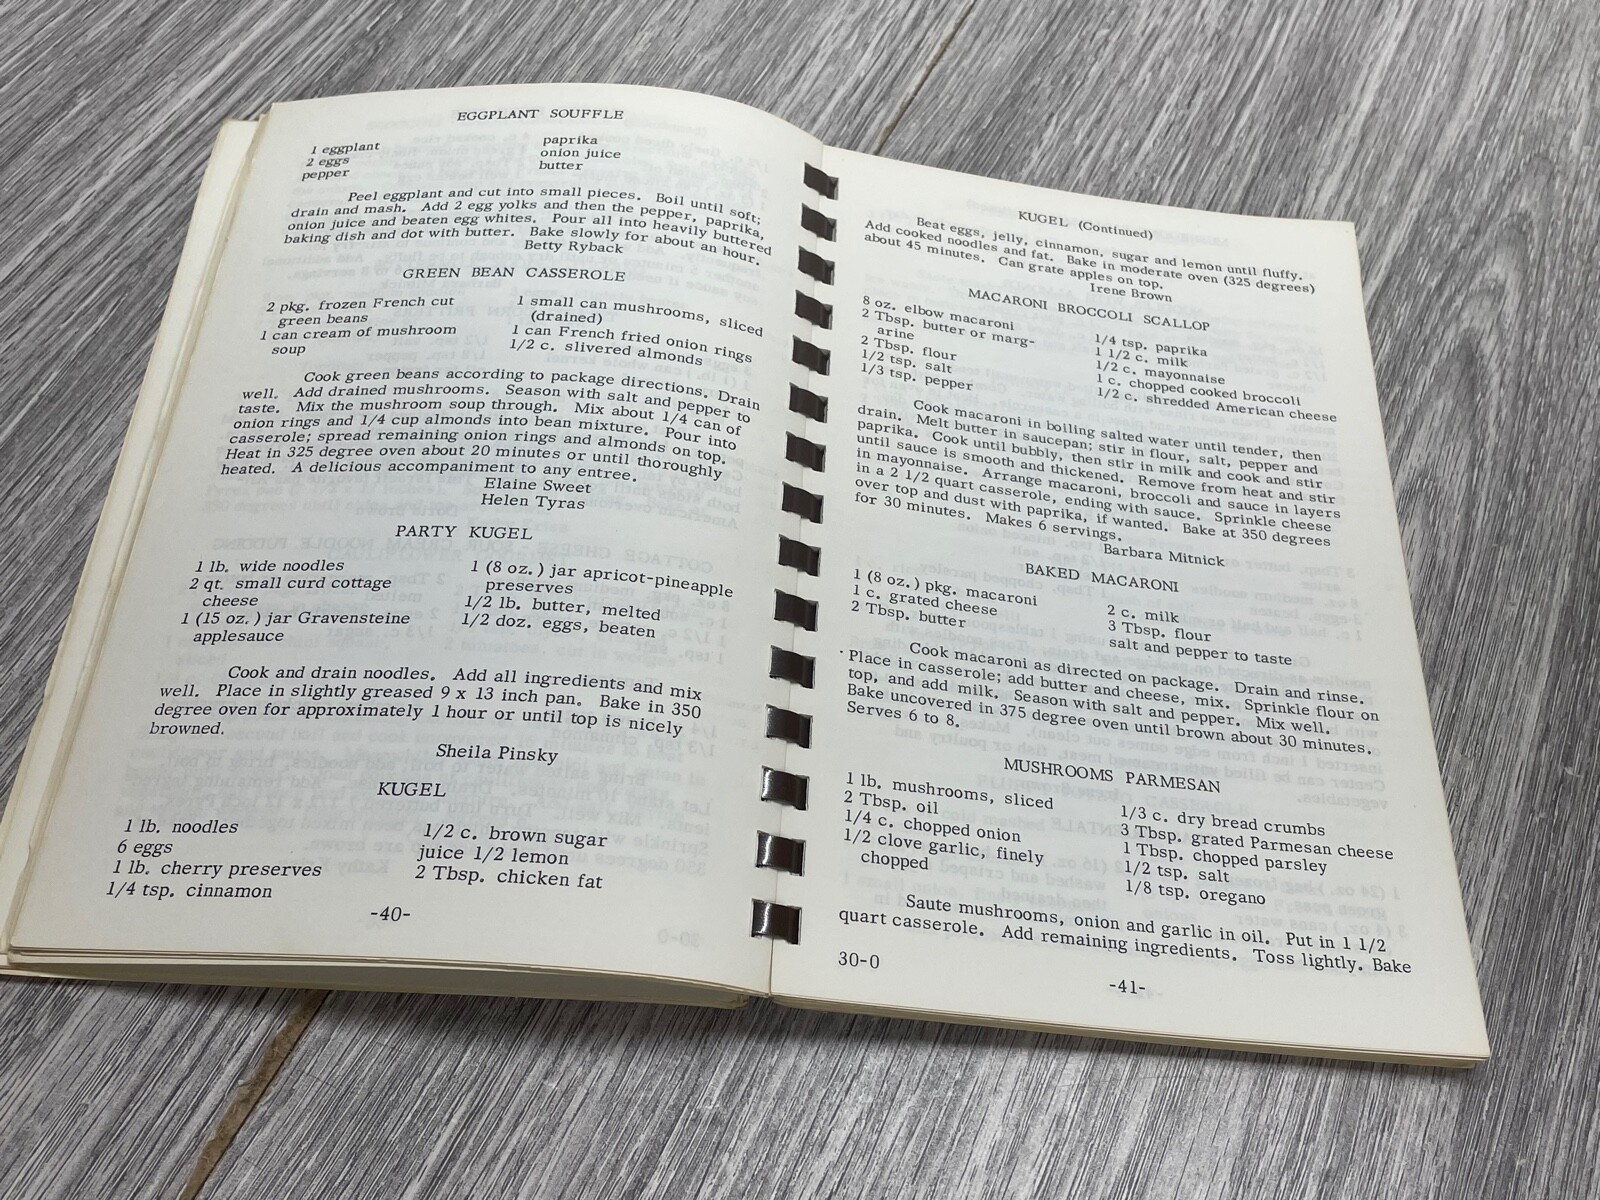 EGGPLANT SOUFFLE
1 eggplant
2 eggs
pepper
paprika
onion juice
butter
Peel eggplant and cut into small pieces. Boil until soft;
drain and mash. Add 2 egg yolks and then the pepper, paprika,
onion juice and beaten egg whites. Pour all into heavily buttered
baking dish and dot with butter. Bake slowly for about an hour.
Betty Ryback
GREEN BEAN CASSEROLE
2 pkg. frozen French cut
green beans
1 can cream of mushroom
soup
1 small can mushrooms, sliced
(drained)
1 can French fried onion rings
1/2 c. slivered almonds
Cook green beans according to package directions. Drain
well. Add drained mushrooms. Season with salt and pepper to
taste. Mix the mushroom soup through. Mix about 1/4 can of
onion rings and 1/4 cup almonds into bean mixture. Pour into
casserole; spread remaining onion rings and almonds on top.
Heat in 325 degree oven about 20 minutes or until thoroughly
heated. A delicious accompaniment to any entree.
Elaine Sweet
Helen Tyras
PARTY KUGEL
1 lb. wide noodles
2 qt. small curd cottage
cheese
1 (15 oz.) jar Gravensteine
applesauce
1 (8 oz.) jar apricot-pineapple
preserves
1/2 lb. butter, melted
1/2 doz. eggs, beaten
Cook and drain noodles. Add all ingredients and mix
well. Place in slightly greased 9 x 13 inch pan. Bake in 350
degree oven for approximately 1 hour or until top is nicely
browned.
Sheila Pinsky
KUGEL
1 lb. noodles
6 eggs
1 lb. cherry preserves
1/4 tsp. cinnamon
1/2 c. brown sugar
juice 1/2 lemon
2 Tbsp. chicken fat
-40-
KUGEL (Continued)
Beat eggs, jelly, cinnamon, sugar and lemon until fluffy.
Add cooked noodles and fat. Bake in moderate oven (325 degrees)
about 45 minutes. Can grate apples on top.
Irene Brown
MACARONI BROCCOLI SCALLOP
8 oz. elbow macaroni
2 Tbsp. butter or marg-
arine
2 Tbsp. flour
1/2 tsp. salt
1/3 tsp. pepper
1/4 tsp. paprika
1 1/2 c. milk
1/2 c. mayonnaise
1 c. chopped cooked broccoli
1/2 c. shredded American cheese
Cook macaroni in boiling salted water until tender, then
drain. Melt butter in saucepan; stir in flour, salt, pepper and
paprika. Cook until bubbly, then stir in milk and cook and stir
until sauce is smooth and thickened. Remove from heat and stir
in mayonnaise. Arrange macaroni, broccoli and sauce in layers
in a 2 1/2 quart casserole, ending with sauce. Sprinkle cheese
over top and dust with paprika, if wanted. Bake at 350 degrees
for 30 minutes. Makes 6 servings.
Barbara Mitnick
BAKED MACARONI
1 (8 oz.) pkg. macaroni
1 c. grated cheese
2 Tbsp. butter
2 c. milk
3 Tbsp. flour
salt and pepper to taste
Cook macaroni as directed on package. Drain and rinse.
Place in casserole; add butter and cheese, mix. Sprinkle flour on
top, and add milk. Season with salt and pepper. Mix well.
Bake uncovered in 375 degree oven until brown about 30 minutes.
Serves 6 to 8.
MUSHROOMS PARMESAN
1 lb. mushrooms, sliced
2 Tbsp. oil
1/4 c. chopped onion
1/2 clove garlic, finely
chopped
1/3 c. dry bread crumbs
3 Tbsp. grated Parmesan cheese
1 Tbsp. chopped parsley
1/2 tsp. salt
1/8 tsp. oregano
Saute mushrooms, onion and garlic in oil. Put in 1 1/2
quart casserole. Add remaining ingredients. Toss lightly. Bake
30-0
-41-